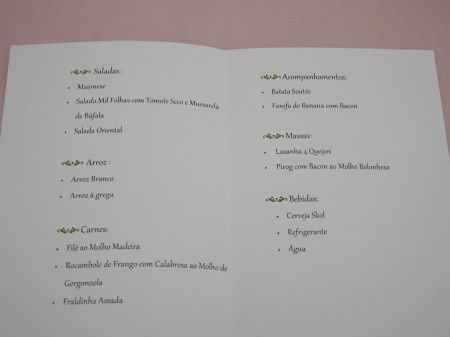 Saladas :
• Maionese
• Salada Mil Folhas com Tomate Seco e Mussarela
de Búfala
• Salada Oriental
Arroz :
• Arroz Branco
• Arroz à grega
Carnes:
• Filé ao Molho Madeira
• Rocambole de Frango com Calabresa ao Molho de
Gorgonzola
• Fraldinha Assada
Acompanhamentos:
• Batata Soutée
• Farofa de Banana com Bacon
Massas:
• Lasanha 4 Queijos
• Pirog com Bacon ao Molho Bolonhesa
Bebidas:
• Cerveja Skol
• Refrigerante
• Água